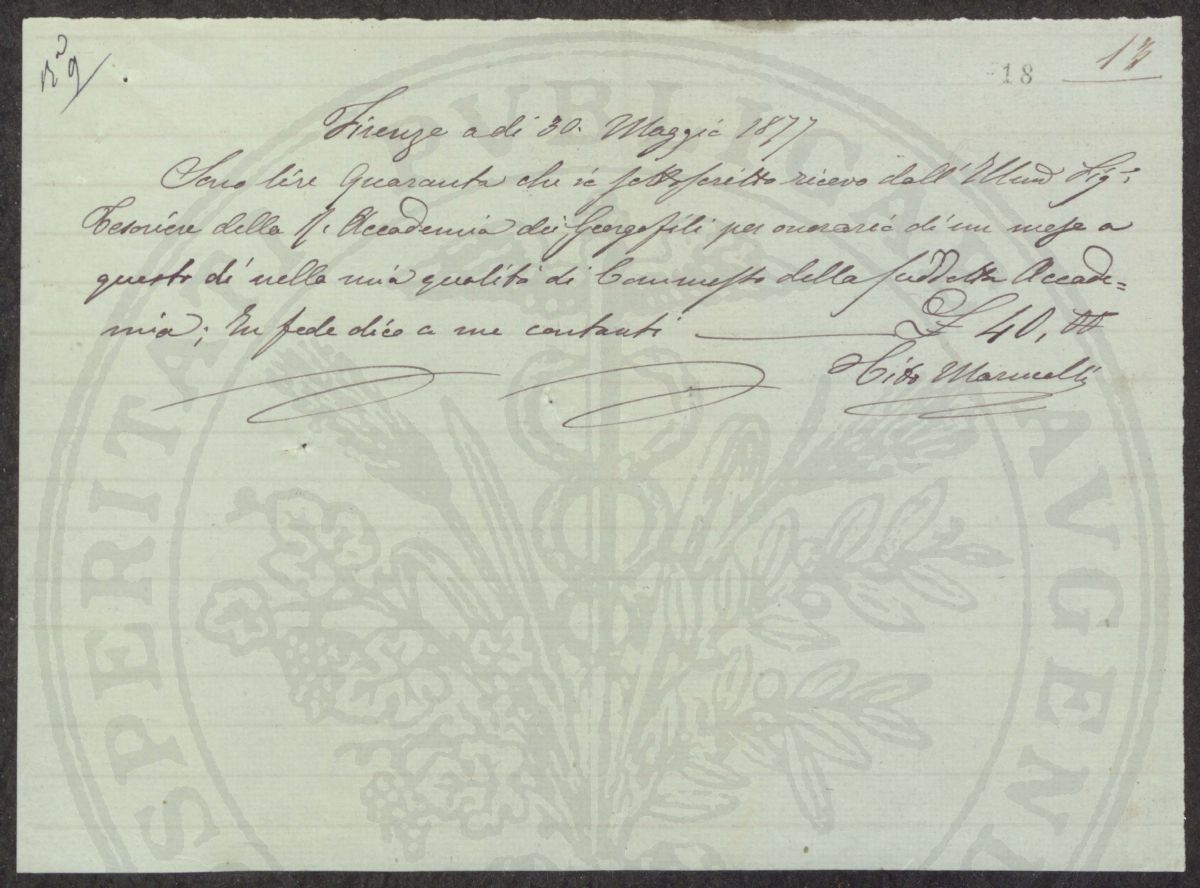 18
13
Firenze a di 30. Maggio 1877
Sono lire Quaranta che io sottoscritto ricevo dall' Illmo Sigr
Tesoriere della R. Accademia dei Georgofili per onorario di un mese a
questo dì nella mia qualità di Commesso della suddetta Accade=
mia; In fede dico a me contanti £ 40, 00
Tito Marucelli
PROSPERITATI PVBLICAE AVGENDAE